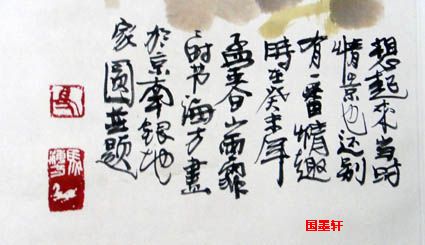 想起来当时
情景也还别
有一番情趣
时在癸未年
孟春山雨霏
霏时节海方画
于京南银地
家园并题
国墨轩